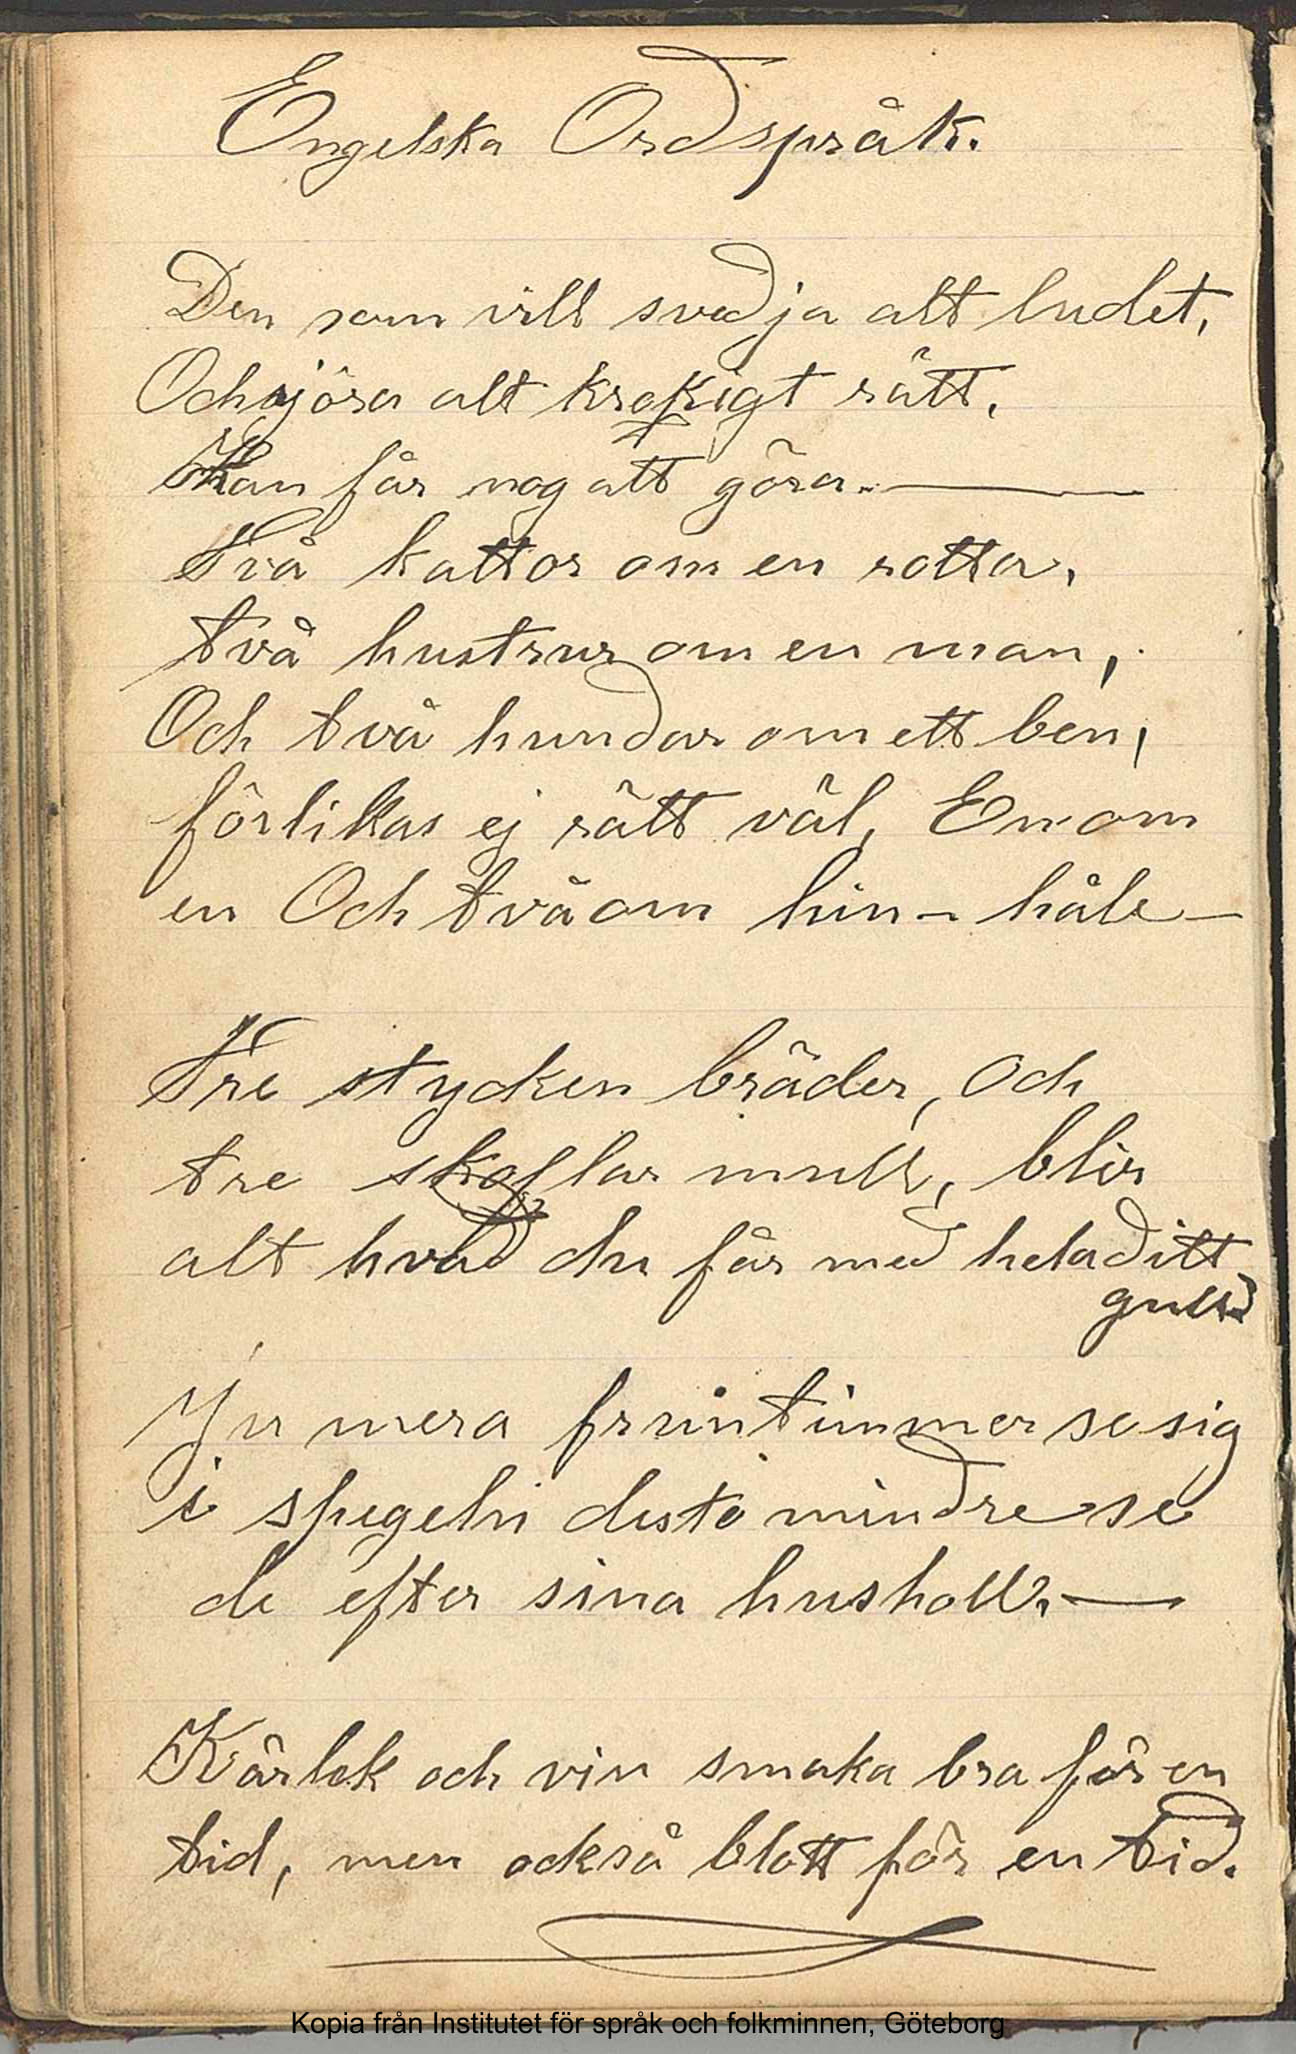 Engelska Ordspråk.
Den som vill svedja alt ludet,
Och gjöra alt krokigt rätt,
Han får nog att göra.
Två kattor om en rotta,
två hustrur om en man,
Och två hundar om ett ben,
förlikas ej rätt väl, En om
en Och två om hin - håle -
Tre stycken bräder, och
tre skoflar mull, blir
alt hvad du får med hela ditt
gull
Ju mera fruntimmer se sig
i spegeln desto mindre se
de efter sina hushåll. -
Kärlek och vin smaka bra för en
tid, men också blott för en tid.
Kopia från Institutet för språk och folkminnen, Göteborg